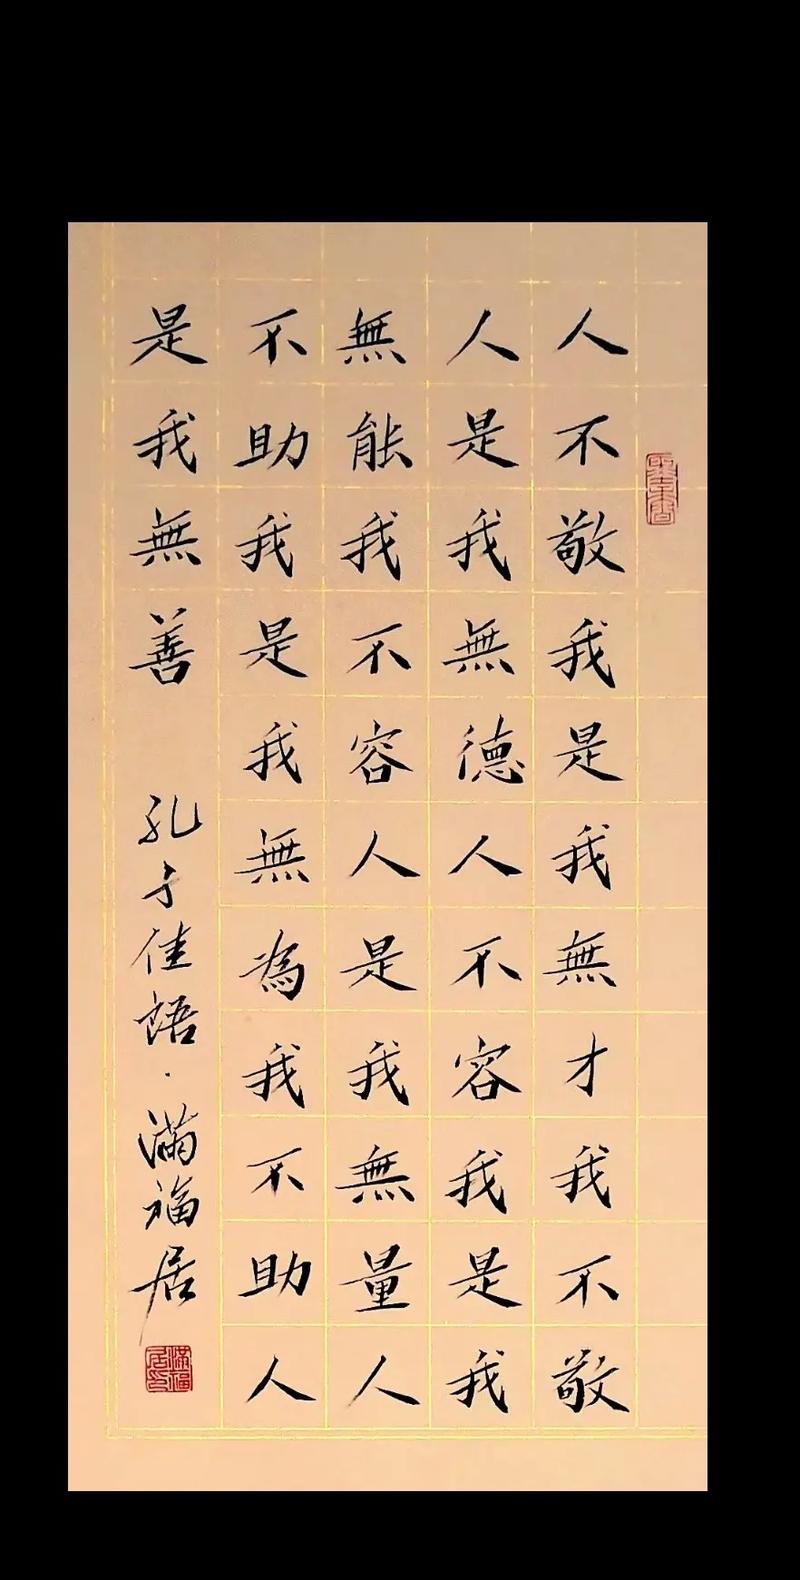 人不敬我是我無才我不敬
人是我無德人不容我是我
無能我不容人是我無量人
不助我是我無為我不助人
是我無善
孔子佳語·滿福居
滿福居印